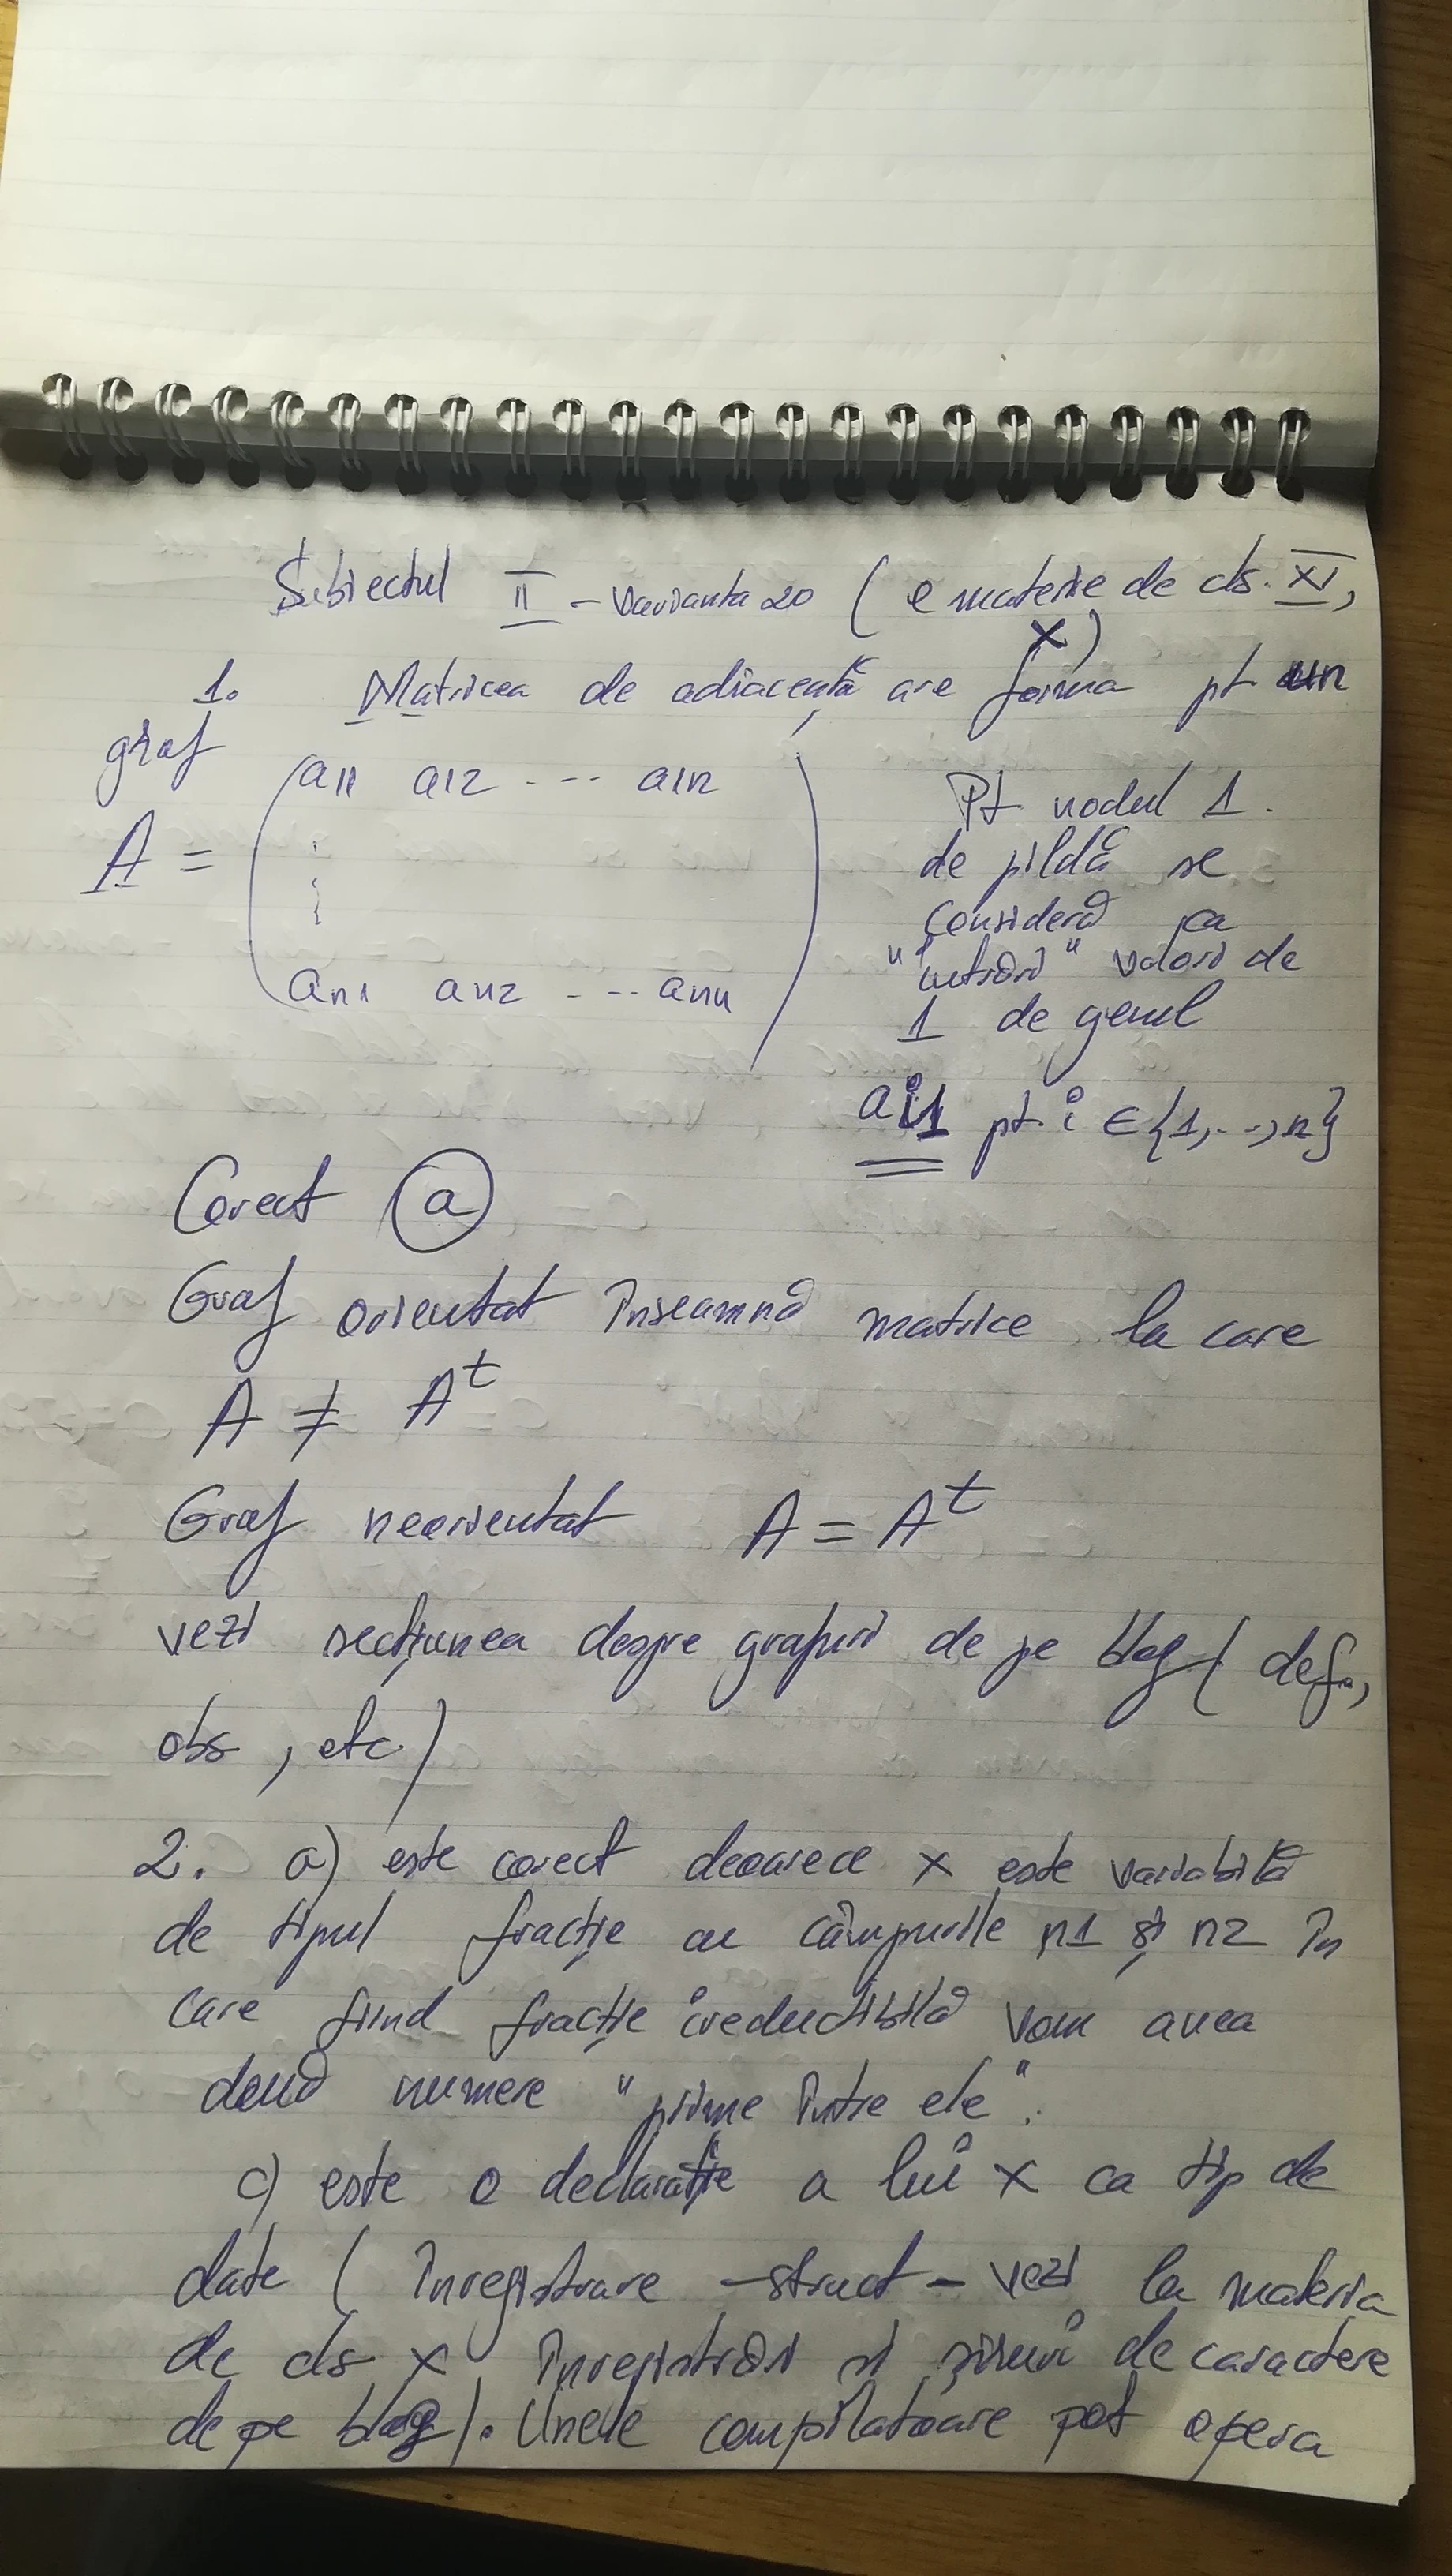 Subiectul II - varianta 20 ( e materie de cls. XI,
X)
1. Matricea de adiacență are forma pt un
graf
a11 a12 ... a1n
A =
an1 an2 ... ann
Pt nodul 1
de pildă se
consideră ca
"intrări" valori de
1 de genul
ai1 pt i ∈ {1,..,n}
Corect a
Graf orientat înseamnă matrice la care
A ≠ A^t
Graf neorientat A = A^t
vezi secțiunea despre grafuri de pe blog ( def.,
obs, etc)
2. a) este corect deoarece x este variabilă
de tipul fracție cu câmpurile n1 și n2 în
care fiind fracție ireductibilă vom avea
două numere "prime între ele".
c) este o declarație a lui x ca tip de
date ( înregistrare - struct - vezi la materia
de cls X înregistrări și șiruri de caractere
de pe blog). Unele compilatoare pot opera